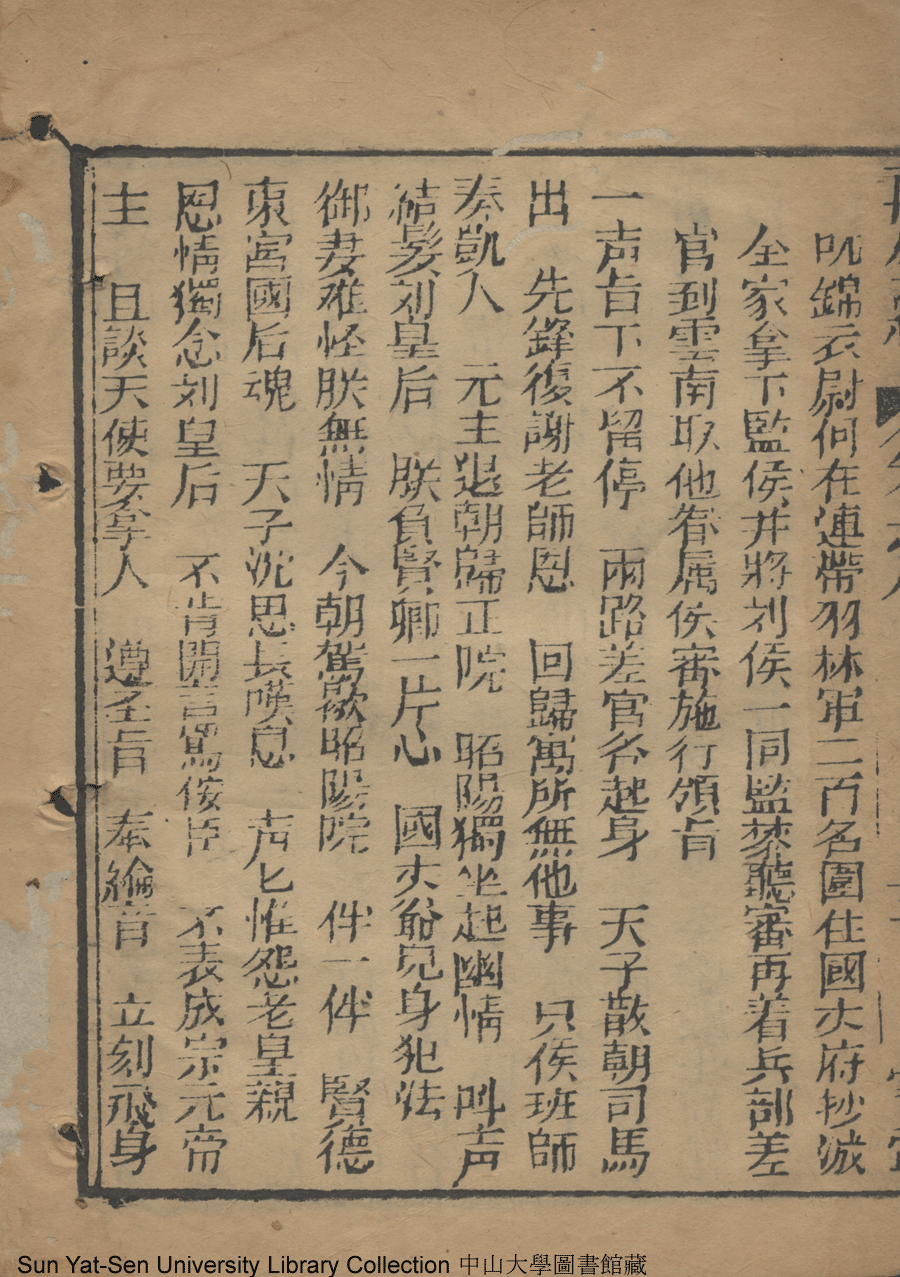 叽錦衣尉何在連帶羽林軍二百名圍住國丈府抄滅
全家拿下監侯并將刘侯一同監禁聽審再着兵部差
官到雲南取他眷属侯審施行領旨
一声旨下不留停　兩路差官各起身　天子散朝司馬
出　先鋒復謝老師恩　回歸寓所無他事　只侯班師
奏凱人　元主退朝歸正院　昭陽獨坐起幽情　叫声
結髮刘皇后　朕負賢卿一片心　國丈爺兄身犯法
御妻难怪朕無情　今朝駕歇昭陽院　伴一伴　賢德
東宮國后魂　天子沈思長嘆息　声匕惟怨老皇親
恩情獨念刘皇后　不肯開言罵佞臣　不表成宗元帝
主　且談天使要拿人　遵圣旨　奉綸音　立刻飛身
Sun Yat-Sen University Library Collection 中山大學圖書館藏